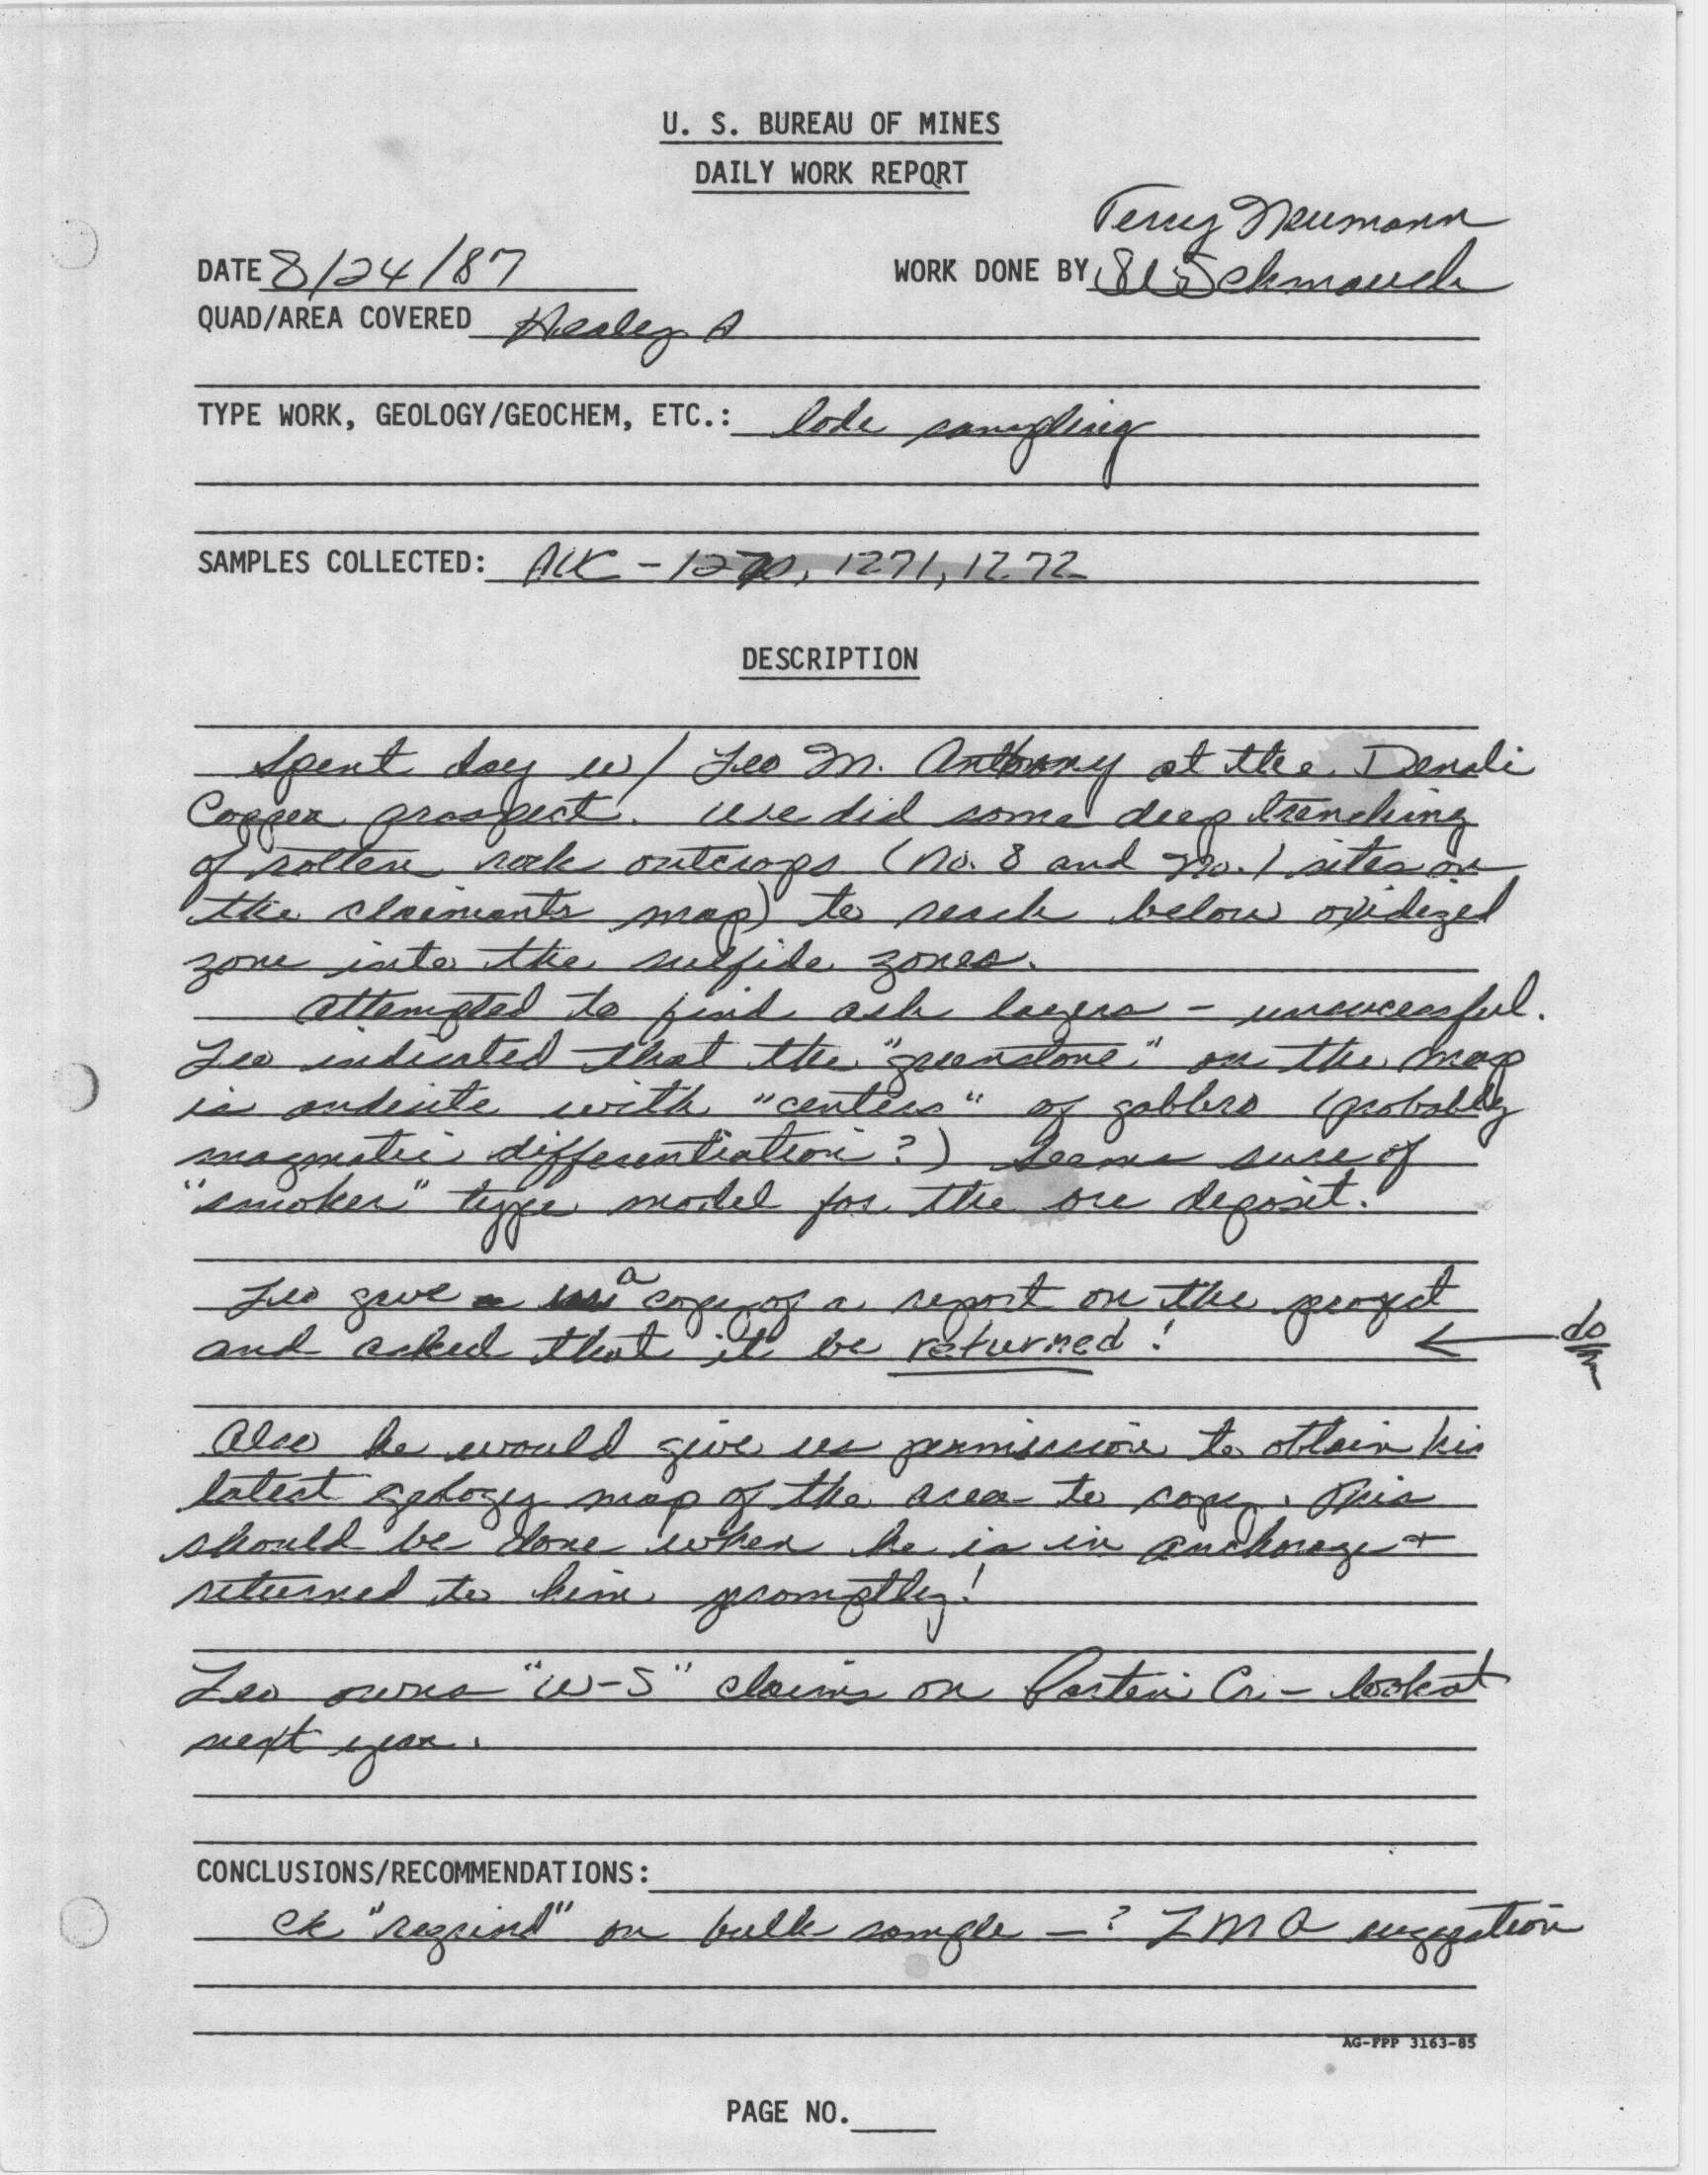 U. S. BUREAU OF MINES
DAILY WORK REPORT
Terry Neumann
DATE 8/24/87 WORK DONE BY Schmauch
QUAD/AREA COVERED Healey A
TYPE WORK, GEOLOGY/GEOCHEM, ETC.: lode sampling
SAMPLES COLLECTED: AUK - 1270, 1271, 1272
DESCRIPTION
Spent day w/ Leo M. Anthony at the Denali
Copper prospect. We did some deep trenching
of rotten rock outcrops (No. 8 and No. 1 sites on
the claimants map) to reach below oxidized
zone into the sulfide zones.
Attempted to find ash layers - unsucessful.
Leo indicated that the "greenstone" on the map
is andesite with "centers" of gabbro (probably
magmatic differentiation?) Seems sure of
"smoker" type model for the ore deposit.
Leo gave us a copy of a report on the project
and asked that it be returned! ←
Also he would give us permission to obtain his
latest geology map of the area to copy. This
should be done when he is in Anchorage +
returned to him promptly!
Leo owns "W-S" claims on Partin Cr - look at
next year.
CONCLUSIONS/RECOMMENDATIONS:
Ck "regrind" on bulk sample - ? LMA suggestion
AG-FPP 3163-85
PAGE NO.